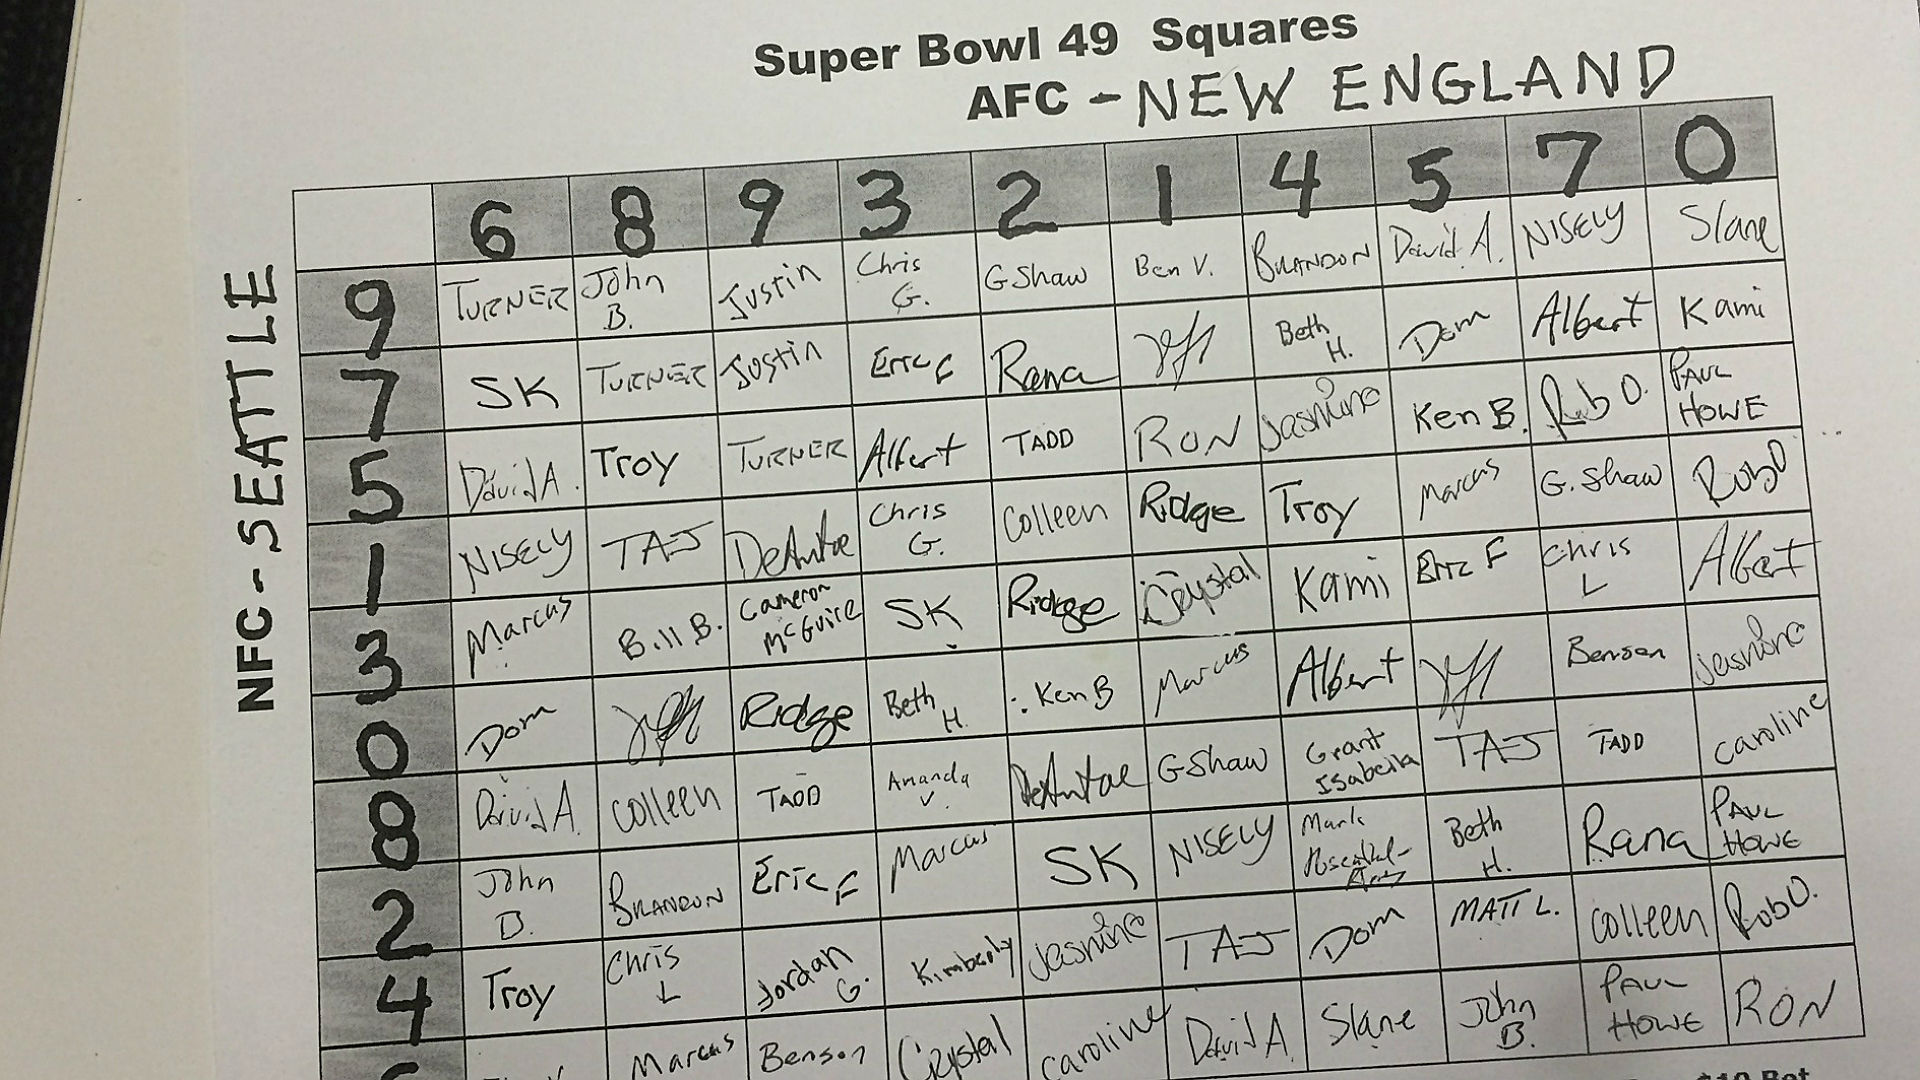 Super Bowl 49 Squares
AFC - NEW ENGLAND
NFC - SEATTLE
6 8 9 3 2 1 4 5 7 0
9 TURNER John B. Justin Chris G. G Shaw Ben V. BRANDON David A. NISELY Slane
7 SK TURNER Justin Eric F Rana Jeff Beth H. Dom Albert Kami
5 David A. Troy TURNER Albert TADD RON Jasmine Ken B. Rob O. PAUL HOWE
1 NISELY TAJ DeAntae Chris G. Colleen Ridge Troy Marcus G. Shaw Rob O
3 Marcus Bill B. Cameron McGuire SK Ridge Crystal Kami Eric F Chris L Albert
0 Dom Jeff Ridge Beth H. Ken B Marcus Albert Jeff Benson Jasmine
8 David A. Colleen TADD Amanda V. DeAntae G Shaw Grant Isabella TAJ TADD Caroline
2 John B. BRANDON Eric F Marcus SK NISELY Mark Beth H. Rana PAUL HOWE
4 Troy Chris L Jordan G. Kimberly Jasmine TAJ Dom MATT L. Colleen Rob O.
Marcus Benson Crystal Caroline David A. Slane John B. PAUL HOWE RON